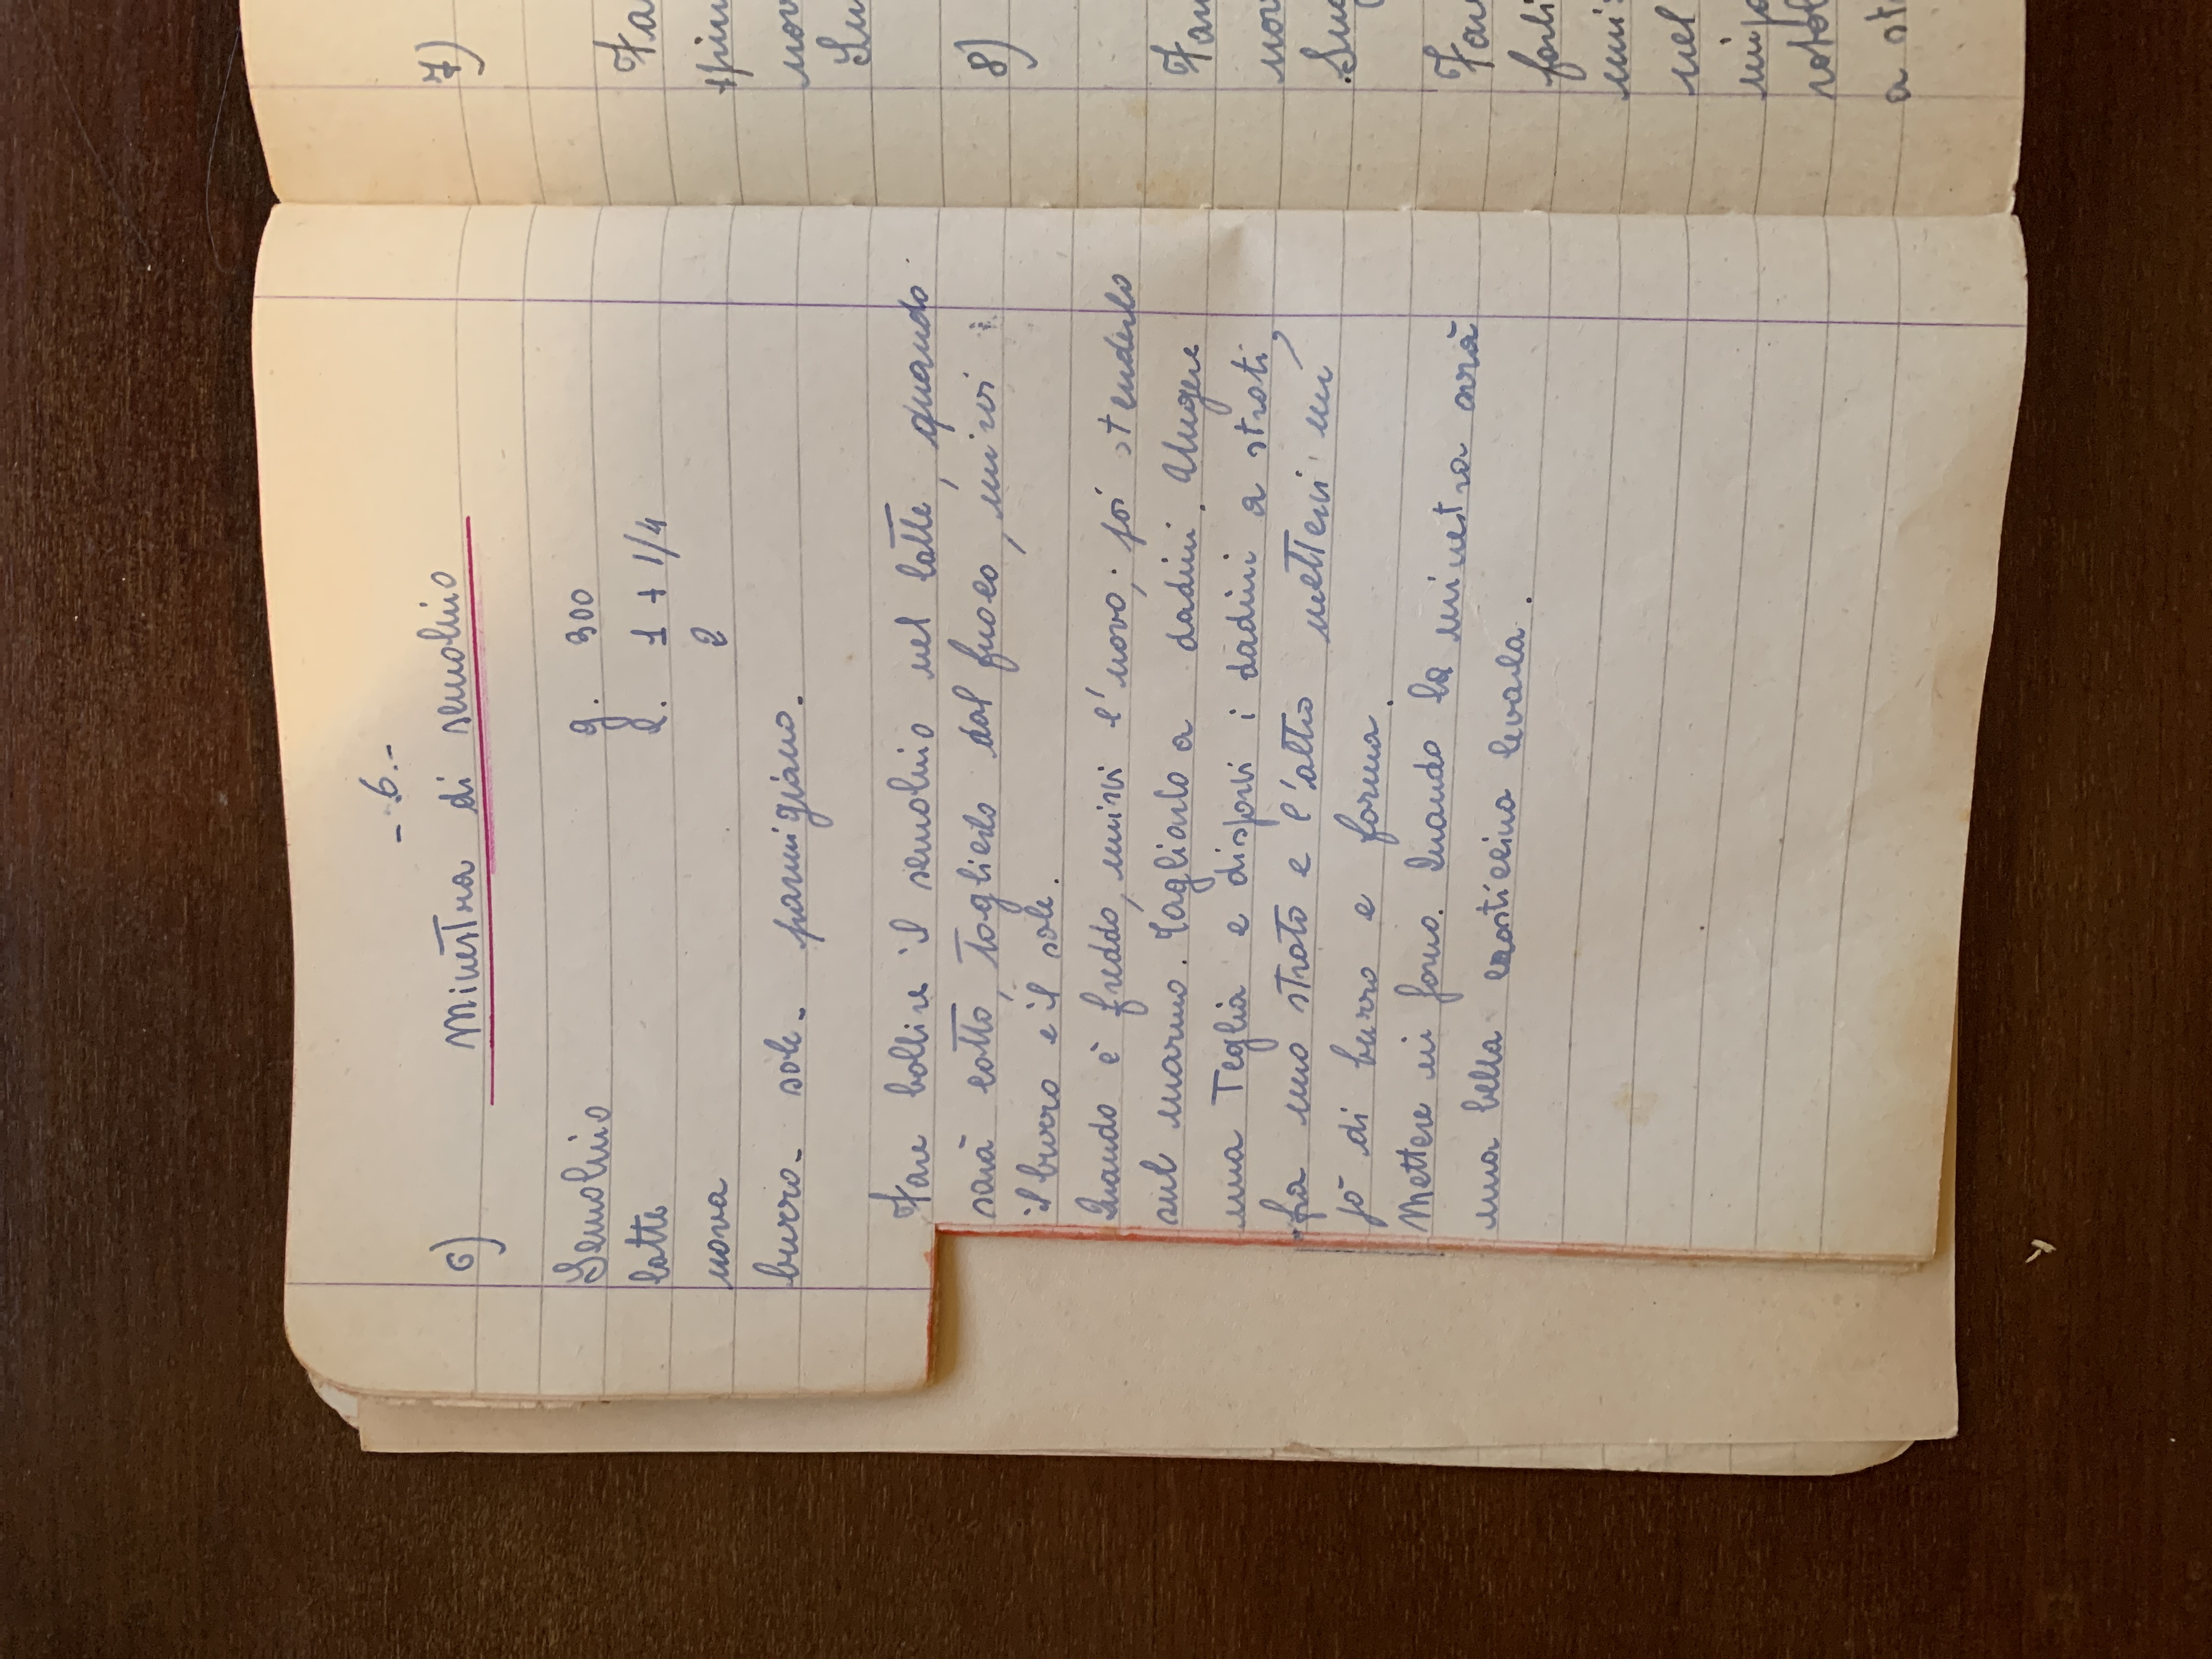 - 6 -
6) Minestra di semolino
Semolino g. 300
latte l. 1 + 1/4
uova 2
burro - sale - parmigiano.
Fare bollire il semolino nel latte, quando
sarà cotto, toglierlo dal fuoco, unirvi
il burro e il sale.
Quando è freddo, unirvi l'uovo; poi stenderlo
sul marmo. Tagliarlo a dadini. Ungere
una Teglia e disporvi i dadini a strati,
fra uno strato e l'altro mettervi un
pò di burro e forma.
Mettere in forno. Quando la minestra avrà
una bella crosticcina levarla.
7)
8)
nel
a